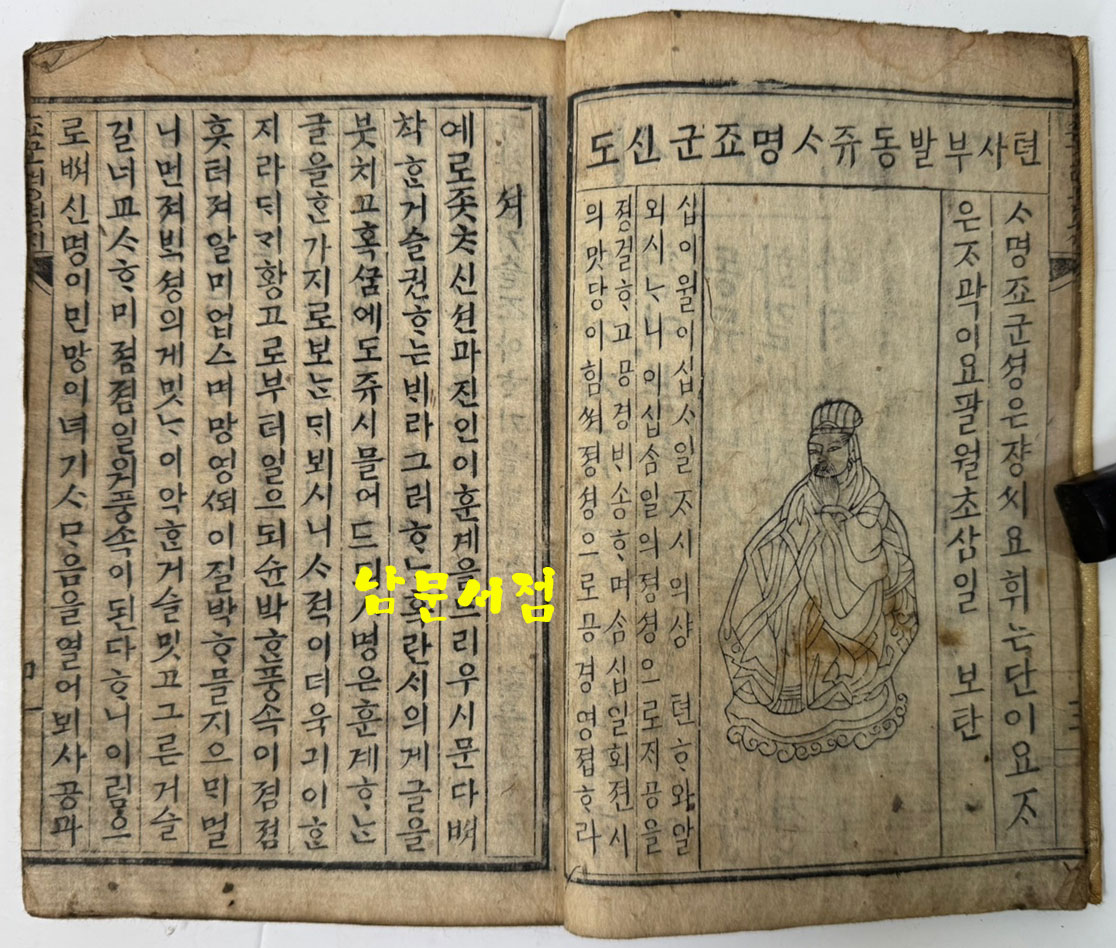 텬사부발동쥬ᄉᆞ명죠군신도
ᄉᆞ명죠군셩은쟝씨요휘는단이요ᄌᆞ
은ᄌᆞ곽이요팔월초삼일 보탄
십이월이십ᄉᆞ일ᄌᆞ시의샹 텬ᄒᆞ와알
외시ᄂᆞ니이십삼일의졍셩으로지공을
졍결ᄒᆞ고공경ᄇᆡ송ᄒᆞ며삼십일회젼시
의맛당이힘ᄡᅥ졍셩으로공경영졉ᄒᆞ라
셔
예로좃ᄎᆞ신션과진인이훈계을ᄂᆞ리우시문다ᄡᅥ
챡ᄒᆞᆫ거슬권ᄒᆞ는ᄇᆡ라그러ᄒᆞᄂᆞ호란시의게글을
붓치고혹ᄭᅮᆷ에도쥬시믈어드ᄆᆡᄉᆞ명은훈계ᄒᆞᄂᆞᆫ
글을ᄒᆞᆫ가지로보ᄂᆞᆫᄃᆡ뵈시니ᄉᆞ젹이더욱긔이ᄒᆞᆫ
지라ᄃᆡᄀᆡ황고로부터일으되슌박ᄒᆞᆫ풍속이졈졈
흣터져알미업스며망영되이질박ᄒᆞ믈지으ᄆᆡ멀
니먼져ᄇᆡᆨ셩의게밋ᄂᆞ이악ᄒᆞᆫ거슬밋고그른거슬
길너교ᄉᆞᄒᆞ미졈졈일워풍속이된다ᄒᆞ니이럼으
로ᄡᅥ신명이민망이녀기ᄉᆞᄆᆞ음을열어뫼사공과
남문서점